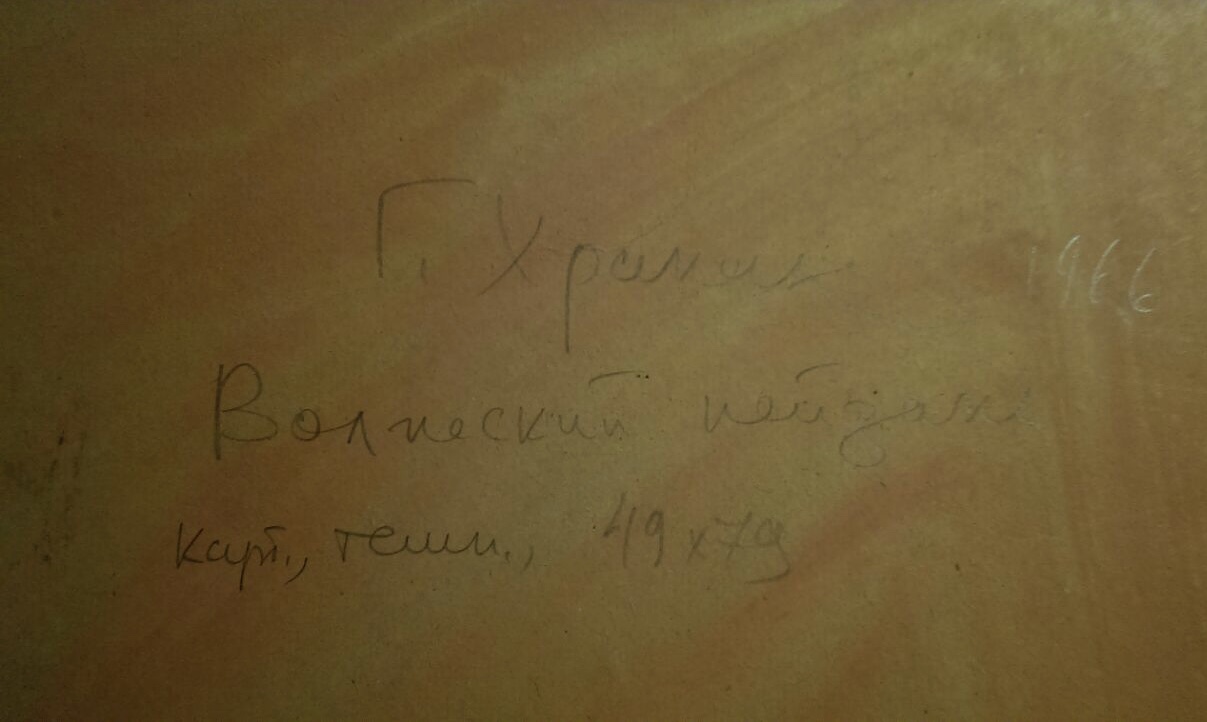 Г. Храпак
1966
Волжский пейзаж
карт., темп., 49х79